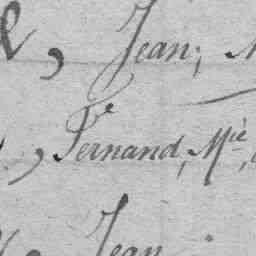 &, Jean;
, Fernand, Mie,
Jean